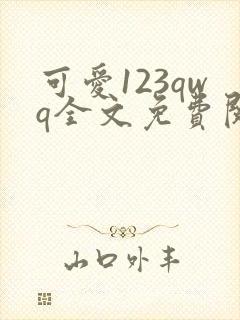 可愛123qw
q全文免費閱
山口外丰